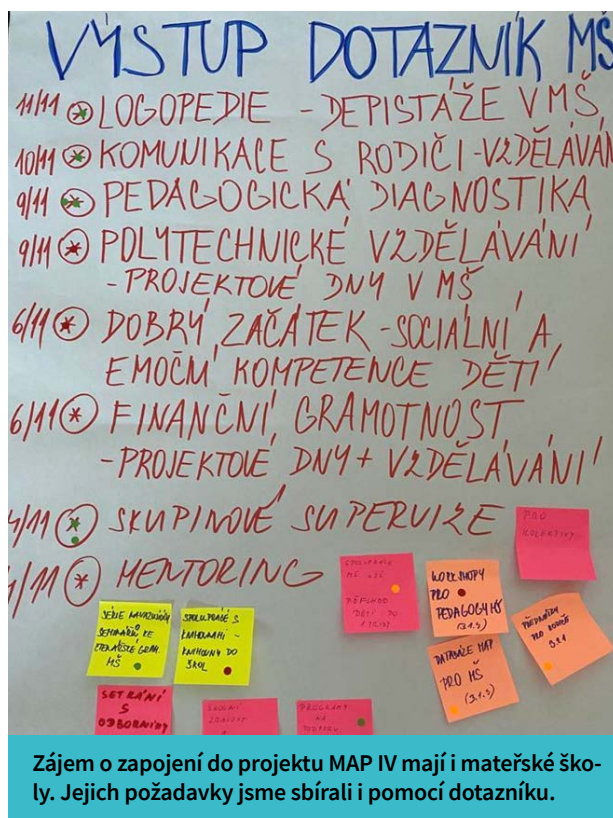 VÝSTUP DOTAZNÍK MŠ
11/11 LOGOPEDIE - DEPISTÁŽE V MŠ
10/11 KOMUNIKACE S RODIČI - VZDĚLÁVÁN
9/11 PEDAGOGICKÁ DIAGNOSTIKA
9/11 POLYTECHNICKÉ VZDĚLÁVÁNÍ
- PROJEKTOVÉ DNY V MŠ
6/11 DOBRÝ ZAČÁTEK - SOCIÁLNÍ A
EMOČNÍ KOMPETENCE DĚTÍ
6/11 FINANČNÍ GRAMOTNOST
- PROJEKTOVÉ DNY + VZDĚLÁVÁNÍ
/11 SKUPINOVÉ SUPERVIZE
/11 MENTORING
PRO
SPOLUPRÁCE
MŠ
PŘECHOD
DĚTÍ DO
WORKSHOPY
PRO
PEDAGOGY MŠ
(3.1.3)
PRO RODIČE
DATABÁZE MAP
PRO MŠ
(3.1.3)
SÉRIE
SEMINÁŘŮ KE
ČTENÁŘSKÉ GRAM.
MŠ
SPOLUPRÁCE S
KNIHOVNAMI -
KNIHOVNY DO
ŠKOL
SETKÁNÍ
S
ODBORNÍKY
ŠKOLNÍ
ZRALOST
PROGRAMY
NA
PODPORU
Zájem o zapojení do projektu MAP IV mají i mateřské ško-
ly. Jejich požadavky jsme sbírali i pomocí dotazníku.